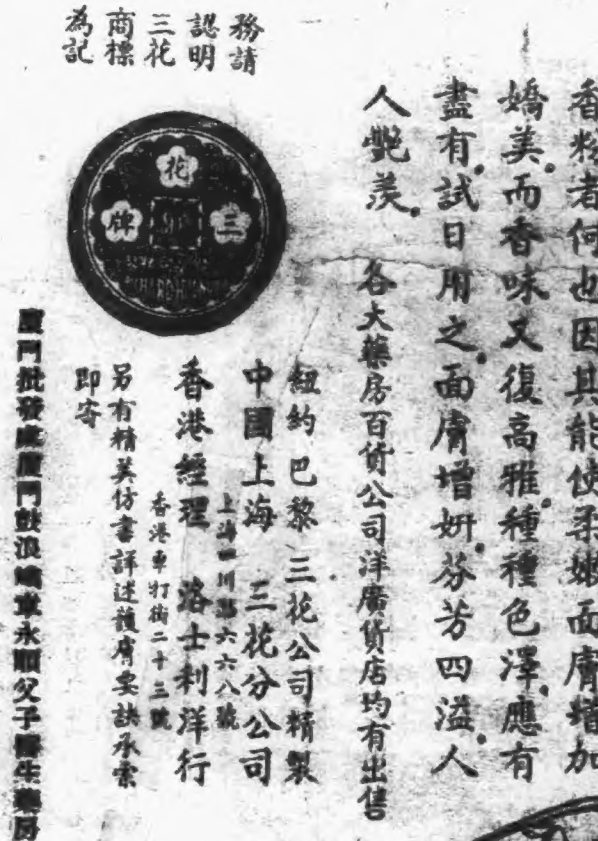 香粉者何也因其能使柔嫩面膚增加
嬌美。而香味又復高雅。種種色澤。應有
盡有。試日用之。面膚增妍。芬芳四溢。人
人艷羨。
各大藥房百貨公司洋廣貨店均有出售
紐約 巴黎 三花公司精製
中國上海 三花分公司
上海四川路六六八號
香港經理 洛士利洋行
香港車打街二十三號
另有精美仿書詳述護膚要訣承索
即寄
務請
認明
三花
商標
為記
花
三
牌
廈門批發處廈門鼓浪嶼章永順父子醫生藥房